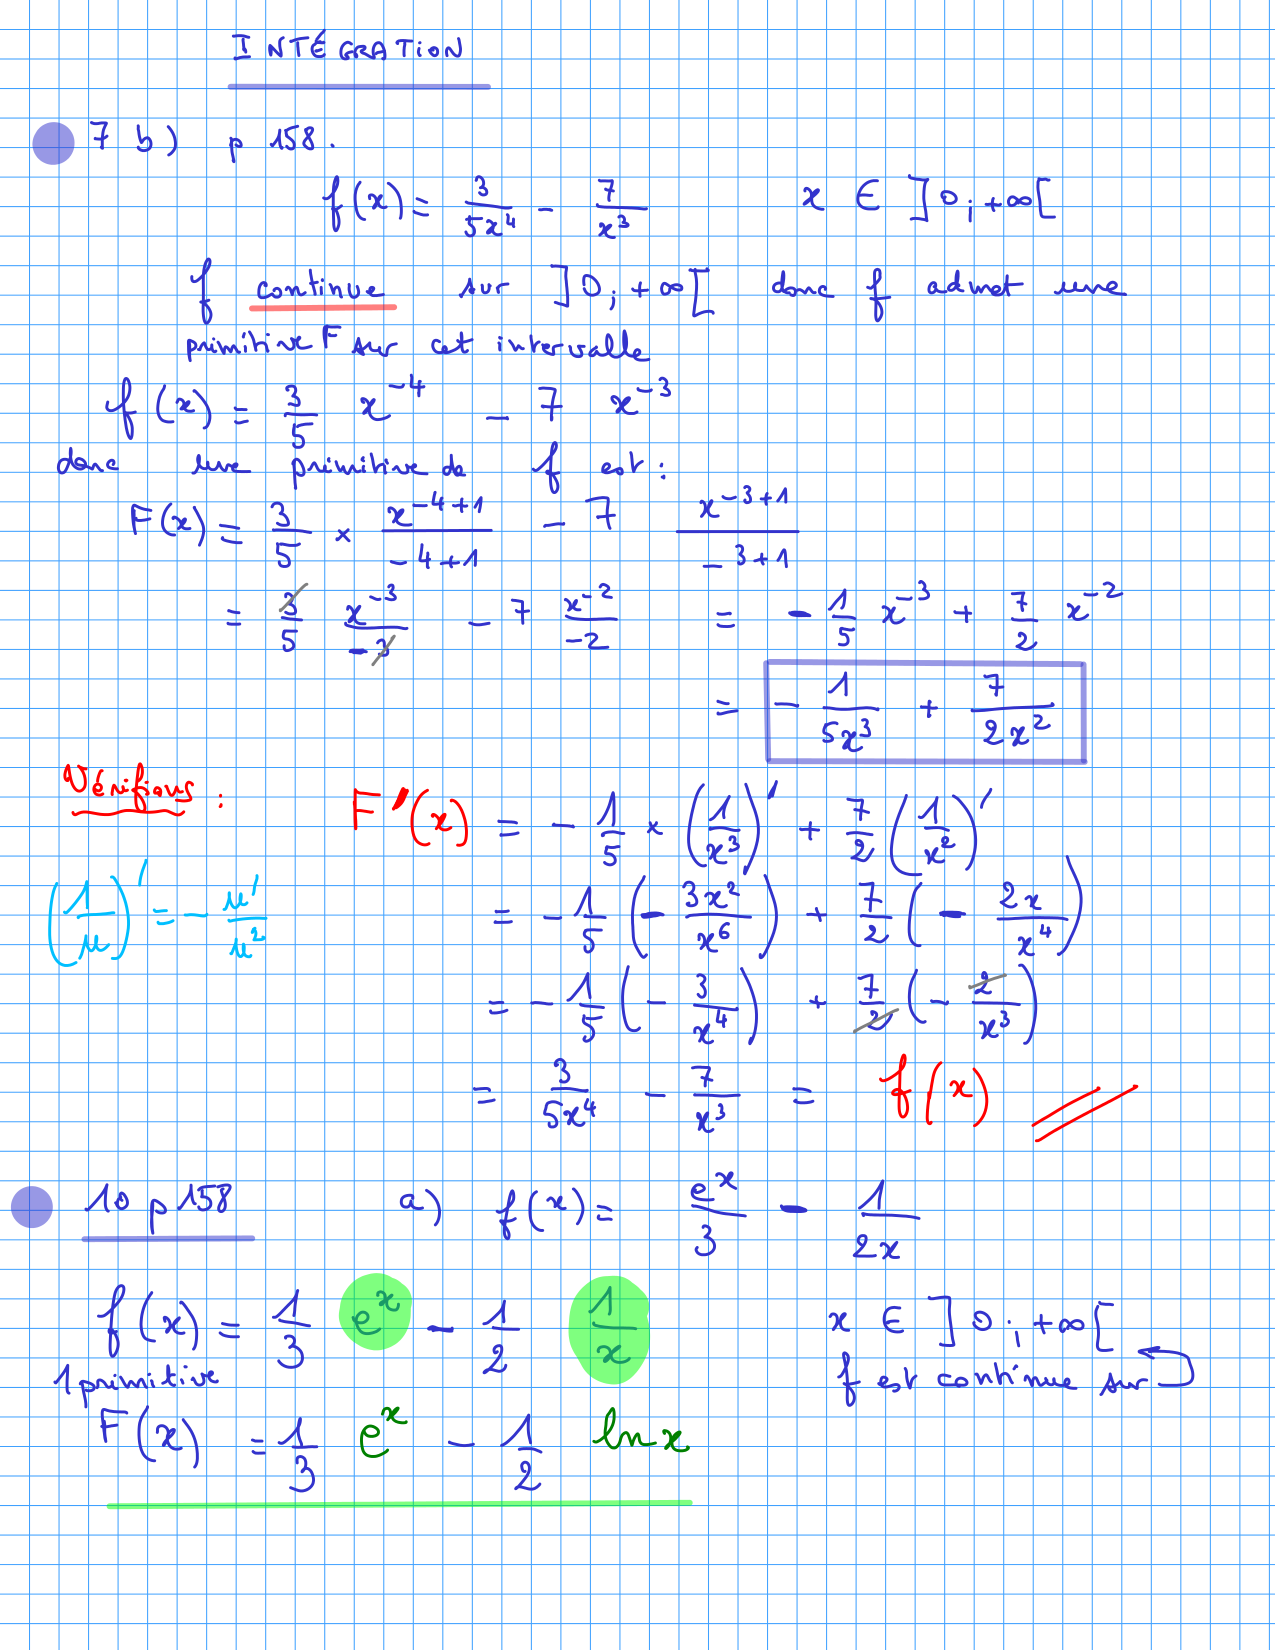 INTÉGRATION
7 b) p 158.
f(x) = 3/(5x⁴) - 7/x³ x ∈ ]0; +∞[
f continue sur ]0; +∞[ donc f admet une
primitive F sur cet intervalle
f(x) = 3/5 x⁻⁴ - 7 x⁻³
donc une primitive de f est :
F(x) = 3/5 × x⁻⁴⁺¹/(-4+1) - 7 x⁻³⁺¹/(-3+1)
= 3/5 x⁻³/(-3) - 7 x⁻²/(-2) = - 1/5 x⁻³ + 7/2 x⁻²
= - 1/(5x³) + 7/(2x²)
Vérifions : F'(x) = - 1/5 × (1/x³)' + 7/2 (1/x²)'
(1/u)' = - u'/u² = - 1/5 (- 3x²/x⁶) + 7/2 (- 2x/x⁴)
= - 1/5 (- 3/x⁴) + 7/2 (- 2/x³)
= 3/(5x⁴) - 7/x³ = f(x)
10 p 158 a) f(x) = eˣ/3 - 1/(2x)
f(x) = 1/3 eˣ - 1/2 1/x x ∈ ]0; +∞[
1 primitive f est continue sur
F(x) = 1/3 eˣ - 1/2 ln x